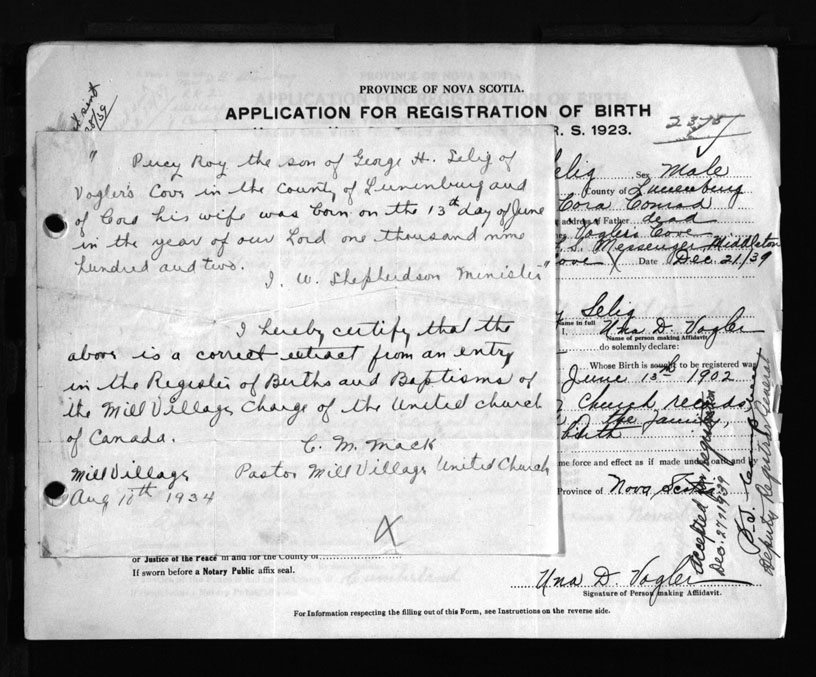 PROVINCE OF NOVA SCOTIA.
APPLICATION FOR REGISTRATION OF BIRTH
R. S. 1923.
28/39
" Percy Roy the son of George H. Selig of
Vogler's Cove in the County of Lunenburg and
of Cora his wife was born on the 13th day of June
in the year of our Lord one thousand nine
hundred and two.
I. W. Shepherdson Minister"
I hereby certify that the
above is a correct extract from an entry
in the Register of Births and Baptisms of
the Mill Village Charge of the United church
of Canada.
C. M. Mack
Mill Village Pastor Mill Village United Church
Aug 10th 1934
elig Sex Male
County of Lunenburg
Cora Conrad
address of Father dead
Vogler's Cove
Messenger Middleton
Cove Date Dec. 21/39
Selig
Name in full Una D. Vogler
Name of person making Affidavit.
do solemnly declare:
Whose Birth is sought to be registered was
June 13th 1902
Church records
of the family,
birth
me force and effect as if made under oath and by
Province of Nova Scotia
accepted for registration
Dec. 27 1939
Deputy Registrar General
or Justice of the Peace in and for the County of
If sworn before a Notary Public affix seal.
Una D. Vogler
Signature of Person making Affidavit.
For Information respecting the filling out of this Form, see Instructions on the reverse side.